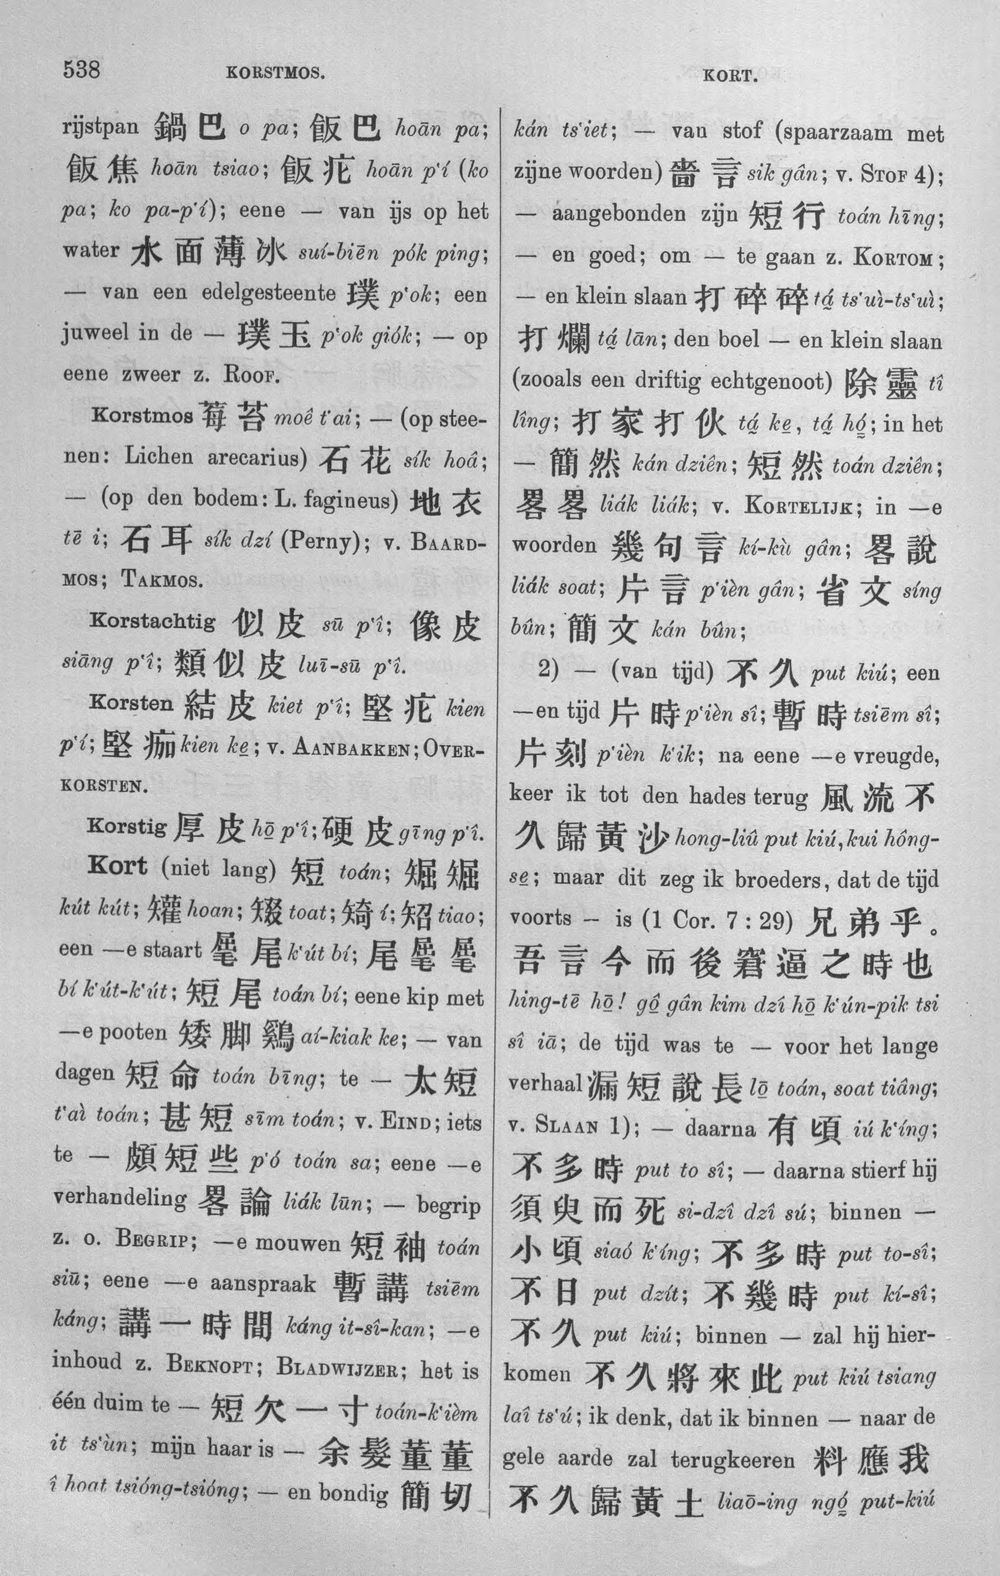 538
KORSTMOS.
KORT.
rijstpan 鍋巴 o pa; 飯巴 hoān pa;
飯焦 hoān tsiao; 飯疕 hoān p'í (ko
pa; ko pa-p'í); eene — van ijs op het
water 水面薄冰 suí-biēn pók ping;
— van een edelgesteente 璞 p'ok; een
juweel in de — 璞玉 p'ok giók; — op
eene zweer z. Roof.
Korstmos 莓苔 moê t'ai; — (op stee-
nen: Lichen arecarius) 石花 sík hoâ;
— (op den bodem: L. fagineus) 地衣
tē i; 石耳 sík dzí (Perny); v. Baard-
mos; Takmos.
Korstachtig 似皮 sū p'î; 像皮
siāng p'î; 類似皮 luī-sū p'î.
Korsten 結皮 kiet p'î; 堅疕 kien
p'í; 堅痂 kien ke̱; v. Aanbakken; Over-
korsten.
Korstig 厚皮 hō̱ p'î; 硬皮 gīng p'î.
Kort (niet lang) 短 toán; 𥏘𥏘
kút kút; 矔 hoan; 叕 toat; 𥏜 í; 𥏨 tiao;
een —e staart 屬尾 k'út bí; 尾屬屬
bí k'út-k'út; 短尾 toán bí; eene kip met
—e pooten 矮脚鷄 aí-kiak ke; — van
dagen 短命 toán bīng; te — 太短
t'aì toán; 甚短 sīm toán; v. Eind; iets
te — 頗短些 p'ó toán sa; eene —e
verhandeling 畧論 liák lūn; — begrip
z. o. Begrip; —e mouwen 短袖 toán
siū; eene —e aanspraak 暫講 tsiēm
káng; 講一時間 káng it-sî-kan; —e
inhoud z. Beknopt; Bladwijzer; het is
één duim te — 短欠一寸 toán-k'ièm
it ts'ùn; mijn haar is — 余髮董董
î hoat tsióng-tsióng; — en bondig 簡切
kán ts'iet; — van stof (spaarzaam met
zijne woorden) 嗇言 sik gân; v. Stof 4);
— aangebonden zijn 短行 toán hīng;
— en goed; om — te gaan z. Kortom;
— en klein slaan 打碎碎 tá̱ ts'uì-ts'uì;
打爛 tá̱ lān; den boel — en klein slaan
(zooals een driftig echtgenoot) 除靈 tî
lîng; 打家打伙 tá̱ ke̱, tá̱ hó̱; in het
— 簡然 kán dziên; 短然 toán dziên;
畧畧 liák liák; v. Kortelijk; in —e
woorden 幾句言 kí-kù gân; 畧說
liák soat; 片言 p'ièn gân; 省文 síng
bûn; 簡文 kán bûn;
2) — (van tijd) 不久 put kiú; een
—en tijd 片時 p'ièn sî; 暫時 tsiēm sî;
片刻 p'ièn k'ik; na eene —e vreugde,
keer ik tot den hades terug 風流不
久歸黃沙 hong-liû put kiú, kui hông-
se̱; maar dit zeg ik broeders, dat de tijd
voorts — is (1 Cor. 7:29) 兄弟乎。
吾言今而後窘逼之時也
hing-tē hō̱! gô̱ gân kim dzî hō̱ k'ún-pik tsi
sî iā; de tijd was te — voor het lange
verhaal 漏短說長 lō̱ toán, soat tiâng;
v. Slaan 1); — daarna 有頃 iú k'íng;
不多時 put to sî; — daarna stierf hij
須臾而死 si-dzî dzî sú; binnen —
小頃 siaó k'íng; 不多時 put to-sî;
不日 put dzít; 不幾時 put kí-sî;
不久 put kiú; binnen — zal hij hier-
komen 不久將來此 put kiú tsiang
laî ts'ú; ik denk, dat ik binnen — naar de
gele aarde zal terugkeeren 料應我
不久歸黃土 liaō-ing ngó̱ put-kiú